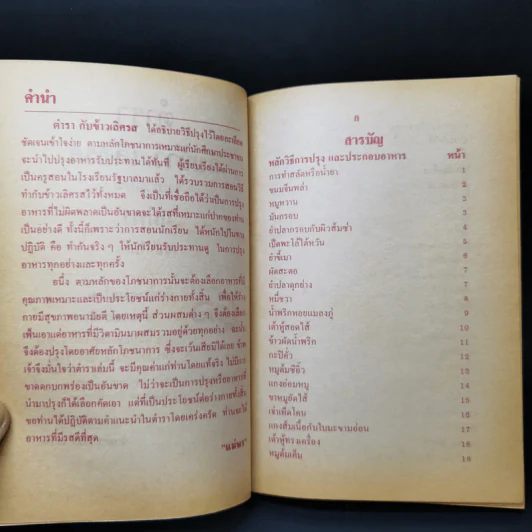 คำนำ
ตำรา กับข้าวเลิศรส ได้อธิบายวิธีปรุงไว้โดยละเอียด
ชัดเจนเข้าใจง่าย ตามหลักโภชนาการเหมาะแก่นักศึกษาประชาชน
จะนำไปปรุงอาหารรับประทานได้ทันที ผู้เรียบเรียงได้ผ่านการ
เป็นครูสอนในโรงเรียนรัฐบาลมาแล้ว ได้รวบรวมการสอนวิธี
ทำกับข้าวเลิศรสไว้ทั้งหมด จึงเป็นที่เชื่อถือได้ว่าเป็นการปรุง
อาหารที่ไม่ผิดพลาดเป็นอันขาดจะได้รสที่เหมาะแก่ปากของท่าน
เป็นอย่างดี ทั้งนี้ก็เพราะว่าการสอนนักเรียน ได้หนักไปในทาง
ปฏิบัติ คือ ทำกันจริงๆ ให้นักเรียนรับประทานดู ในการปรุง
อาหารทุกอย่างและทุกครั้ง
อนึ่ง ตามหลักของโภชนาการนั้นจะต้องเลือกอาหารที่มี
คุณภาพเหมาะและเป็นประโยชน์แก่ร่างกายทั้งสิ้น เพื่อให้ร่าง
กายมีสุขภาพอนามัยดี โดยเหตุนี้ ส่วนผสมต่างๆ จึงต้องเลือก
เฟ้นเอาแต่อาหารที่มีวิตามินมาผสมรวมอยู่ด้วยทุกอย่าง ฉะนั้น
จึงต้องปรุงโดยอาศัยหลักโภชนาการ ซึ่งจะเว้นเสียมิได้เลย ข้าพ
เจ้าจึงมั่นใจว่าตำราเล่มนี้ จะมีคุณค่าแก่ท่านโดยแท้จริง ไม่มีการ
ขาดตกบกพร่องเป็นอันขาด ไม่ว่าจะเป็นการปรุงหรืออาหารที่
นำมาปรุงก็ได้เลือกคัดเอา แต่ที่เป็นประโยชน์ต่อร่างกายทั้งสิ้น
ขอท่านได้ปฏิบัติตามคำแนะนำในตำราโดยเคร่งครัด ท่านจะได้
อาหารที่มีรสดีที่สุด
ก
สารบัญ
หลักวิธีการปรุง และประกอบอาหาร หน้า
การทำสลัดหรือน้ำยา 1
ขนมจีนพล่า 2
หมูหวาน 3
มันกรอบ 4
ยำปลากรอบกับผิวส้มซ่า 5
เป็ดพะโล้ไต้หวัน 6
ยำขี้เมา 7
ผัดสะตอ 8
ยำปลาดุกย่าง 9
หมี่ขวา 9
น้ำพริกหอยแมลงภู่ 10
เต้าหู้สอดไส้ 10
ข้าวผัดน้ำพริก 11
กะปิคั่ว 12
หมูต้มซีอิ๊ว 13
แกงอ่อมหมู 14
ขาหมูยัดไส้ 14
เจ่าเห็ดโคน 16
แกงส้มเนื้อกับใบมะขามอ่อน 17
เต้าหู้ทรงเครื่อง 18
หมูต้มเค็ม 18